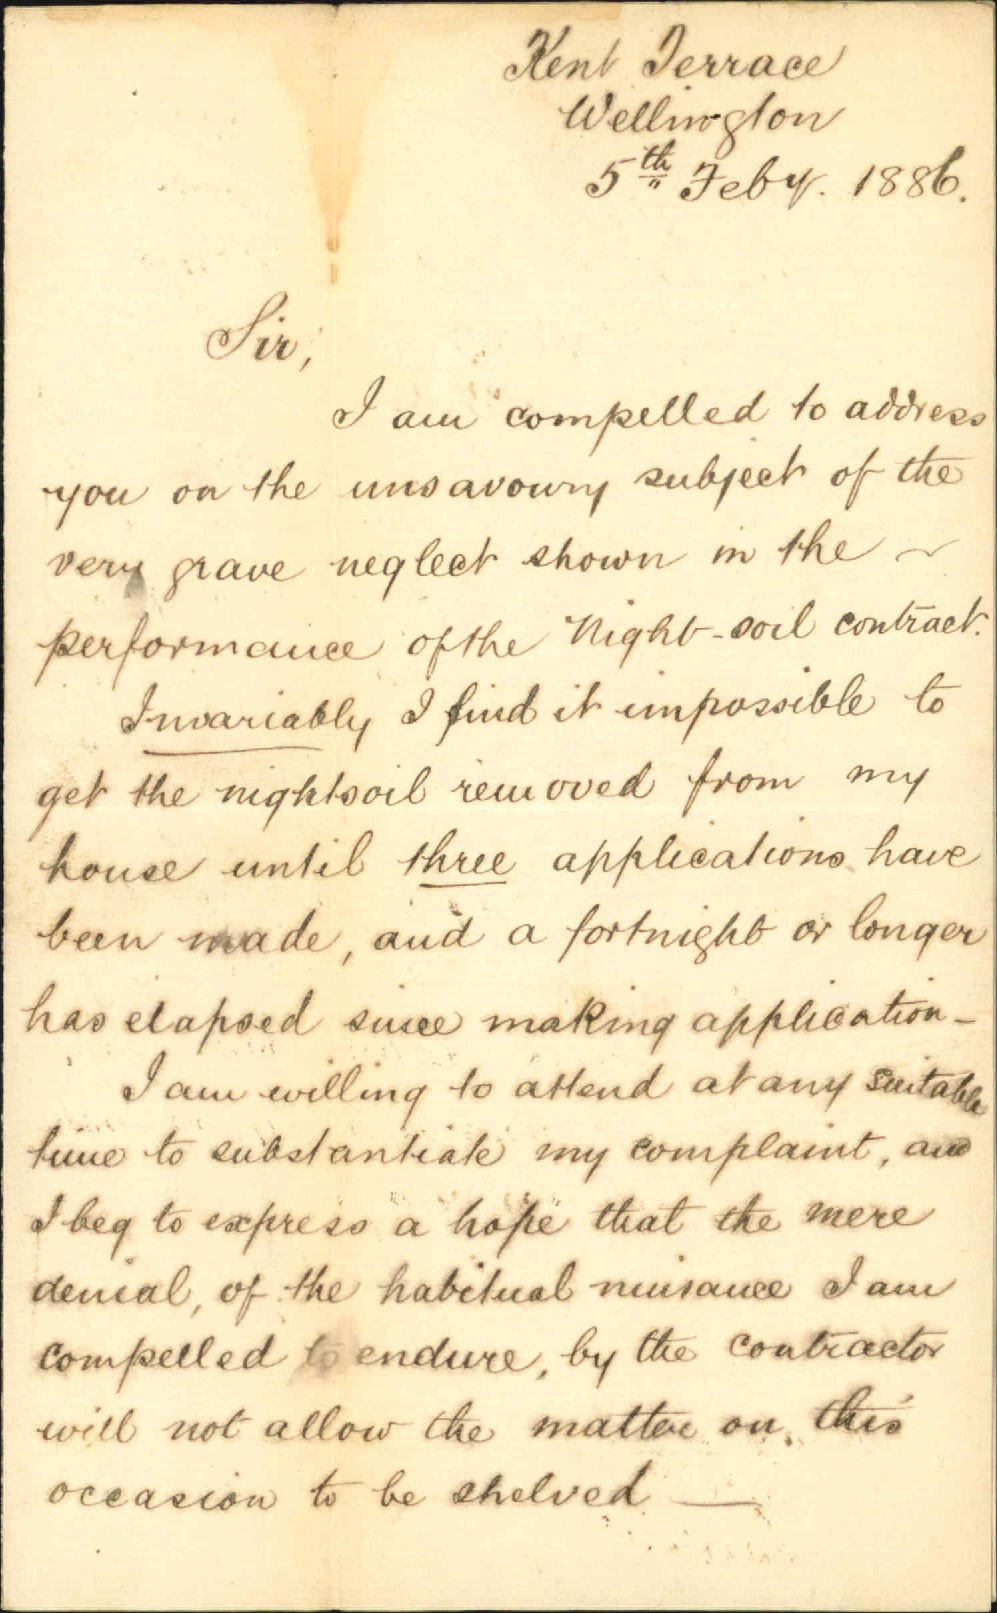 Kent Terrace
Wellington
5th Feby. 1886.
Sir,
I am compelled to address
you on the unsavoury subject of the
very grave neglect shown in the
performance of the Night-soil contract.
Invariably I find it impossible to
get the nightsoil removed from my
house until three applications have
been made, and a fortnight or longer
has elapsed since making application -
I am willing to attend at any suitable
time to substantiate my complaint, and
I beg to express a hope that the mere
denial, of the habitual nuisance I am
compelled to endure, by the contractor
will not allow the matter on this
occasion to be shelved —